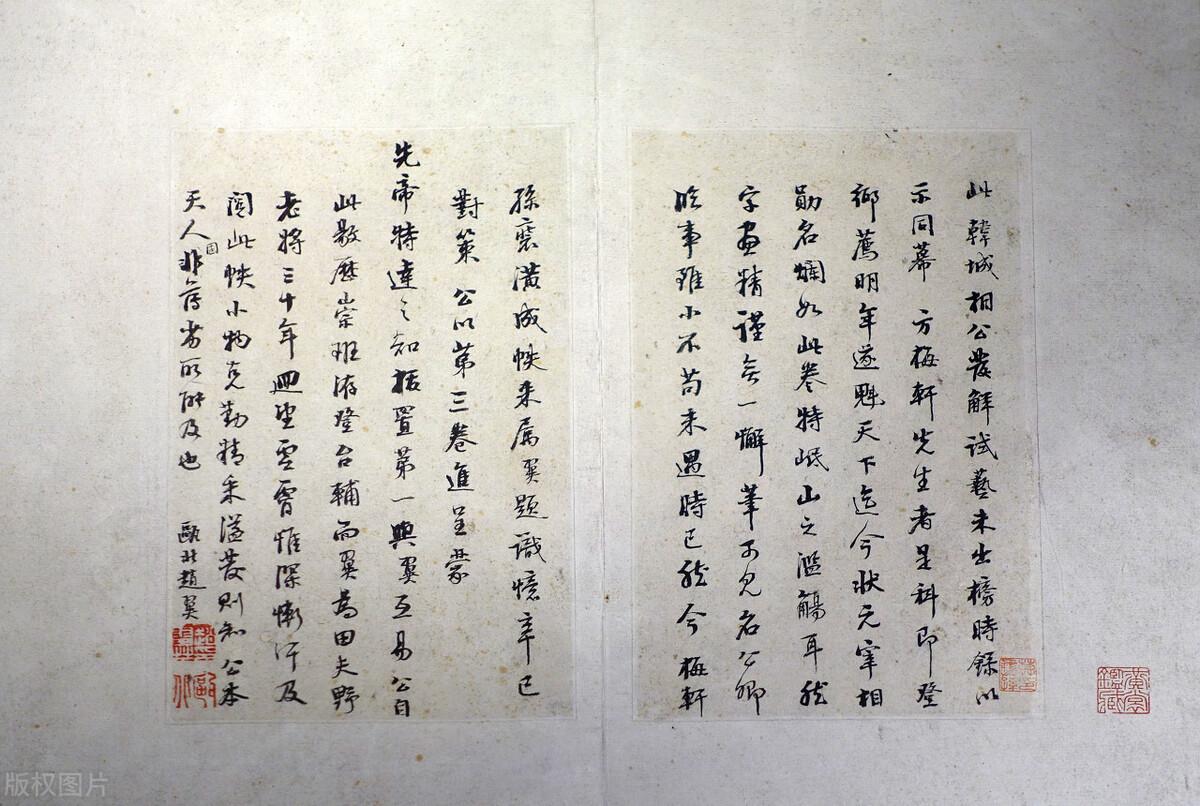 此韓城相公發解試藝未出榜時錄以
示同幕 方梅軒先生者是科即登
鄉薦明年遂魁天下迄今狀元宰相
勛名爛如此卷特岷山之濫觴耳然
字畫精謹無一懈筆可見名公卿
臨事雖小不苟未遇時已然今梅軒
孫裒潢成帙来属翼題識憶辛巳
對策 公以第三卷進呈蒙
先帝特達之知拔置第一與翼互易公自
此敭歷崇班洊登台輔而翼為田夫野
老將三十年迴望雲霄惟深慚汗及
閲此帙小物克勤精采溢發則知 公本
天人固非舊勞所能及也
甌北趙翼
版权图片